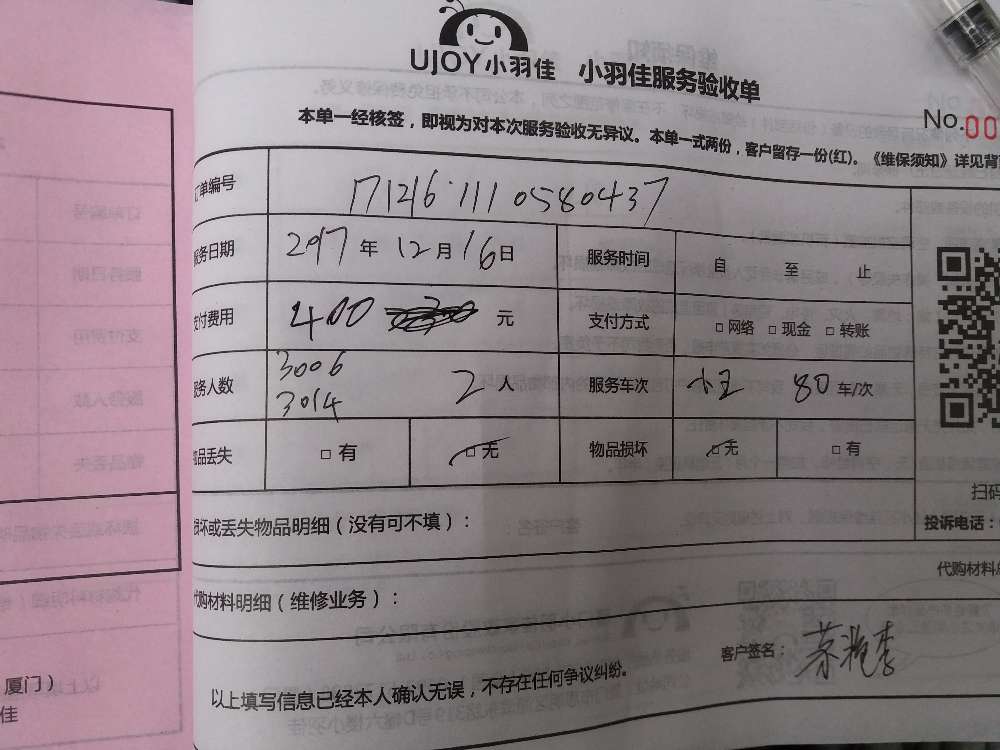 UJOY小羽佳 小羽佳服务验收单
No.00
本单一经核签，即视为对本次服务验收无异议。本单一式两份，客户留存一份(红)。《维保须知》详见背
订单编号 171216·1110580437
服务日期 2017年12月16日 服务时间 自 至 止
支付费用 400 元 支付方式 □网络 □现金 □转账
服务人数 3006 3014 2人 服务车次 小王 80车/次
物品丢失 □有 □无 物品损坏 □无 □有
扫码
损坏或丢失物品明细（没有可不填）：
投诉电话：
代购材料总
代购材料明细（维修业务）：
客户签名：
以上填写信息已经本人确认无误，不存在任何争议纠纷。
厦门）
佳